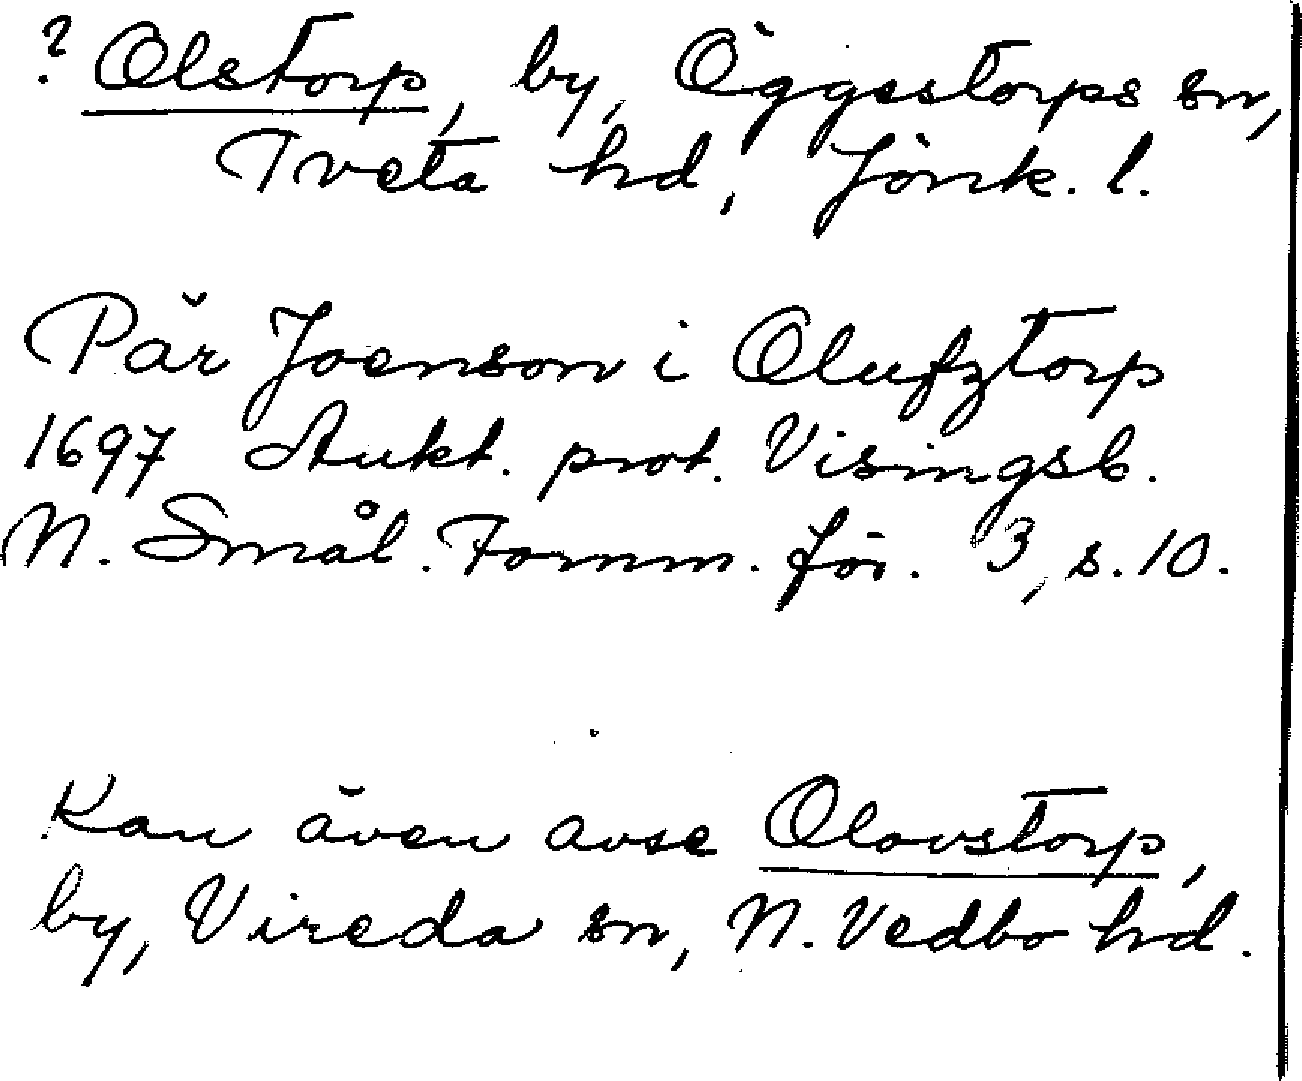 ? Olstorp, by, Öggestorps sn,
Tveta hd, Jönk. l.
Pär Joenson i Olufztorp
1697 Aukt. prot. Visingsb.
N. Smål. Fornm. för. 3, s. 10.
Kan även avse Olovstorp,
by, Vireda sn, N. Vedbo hd.